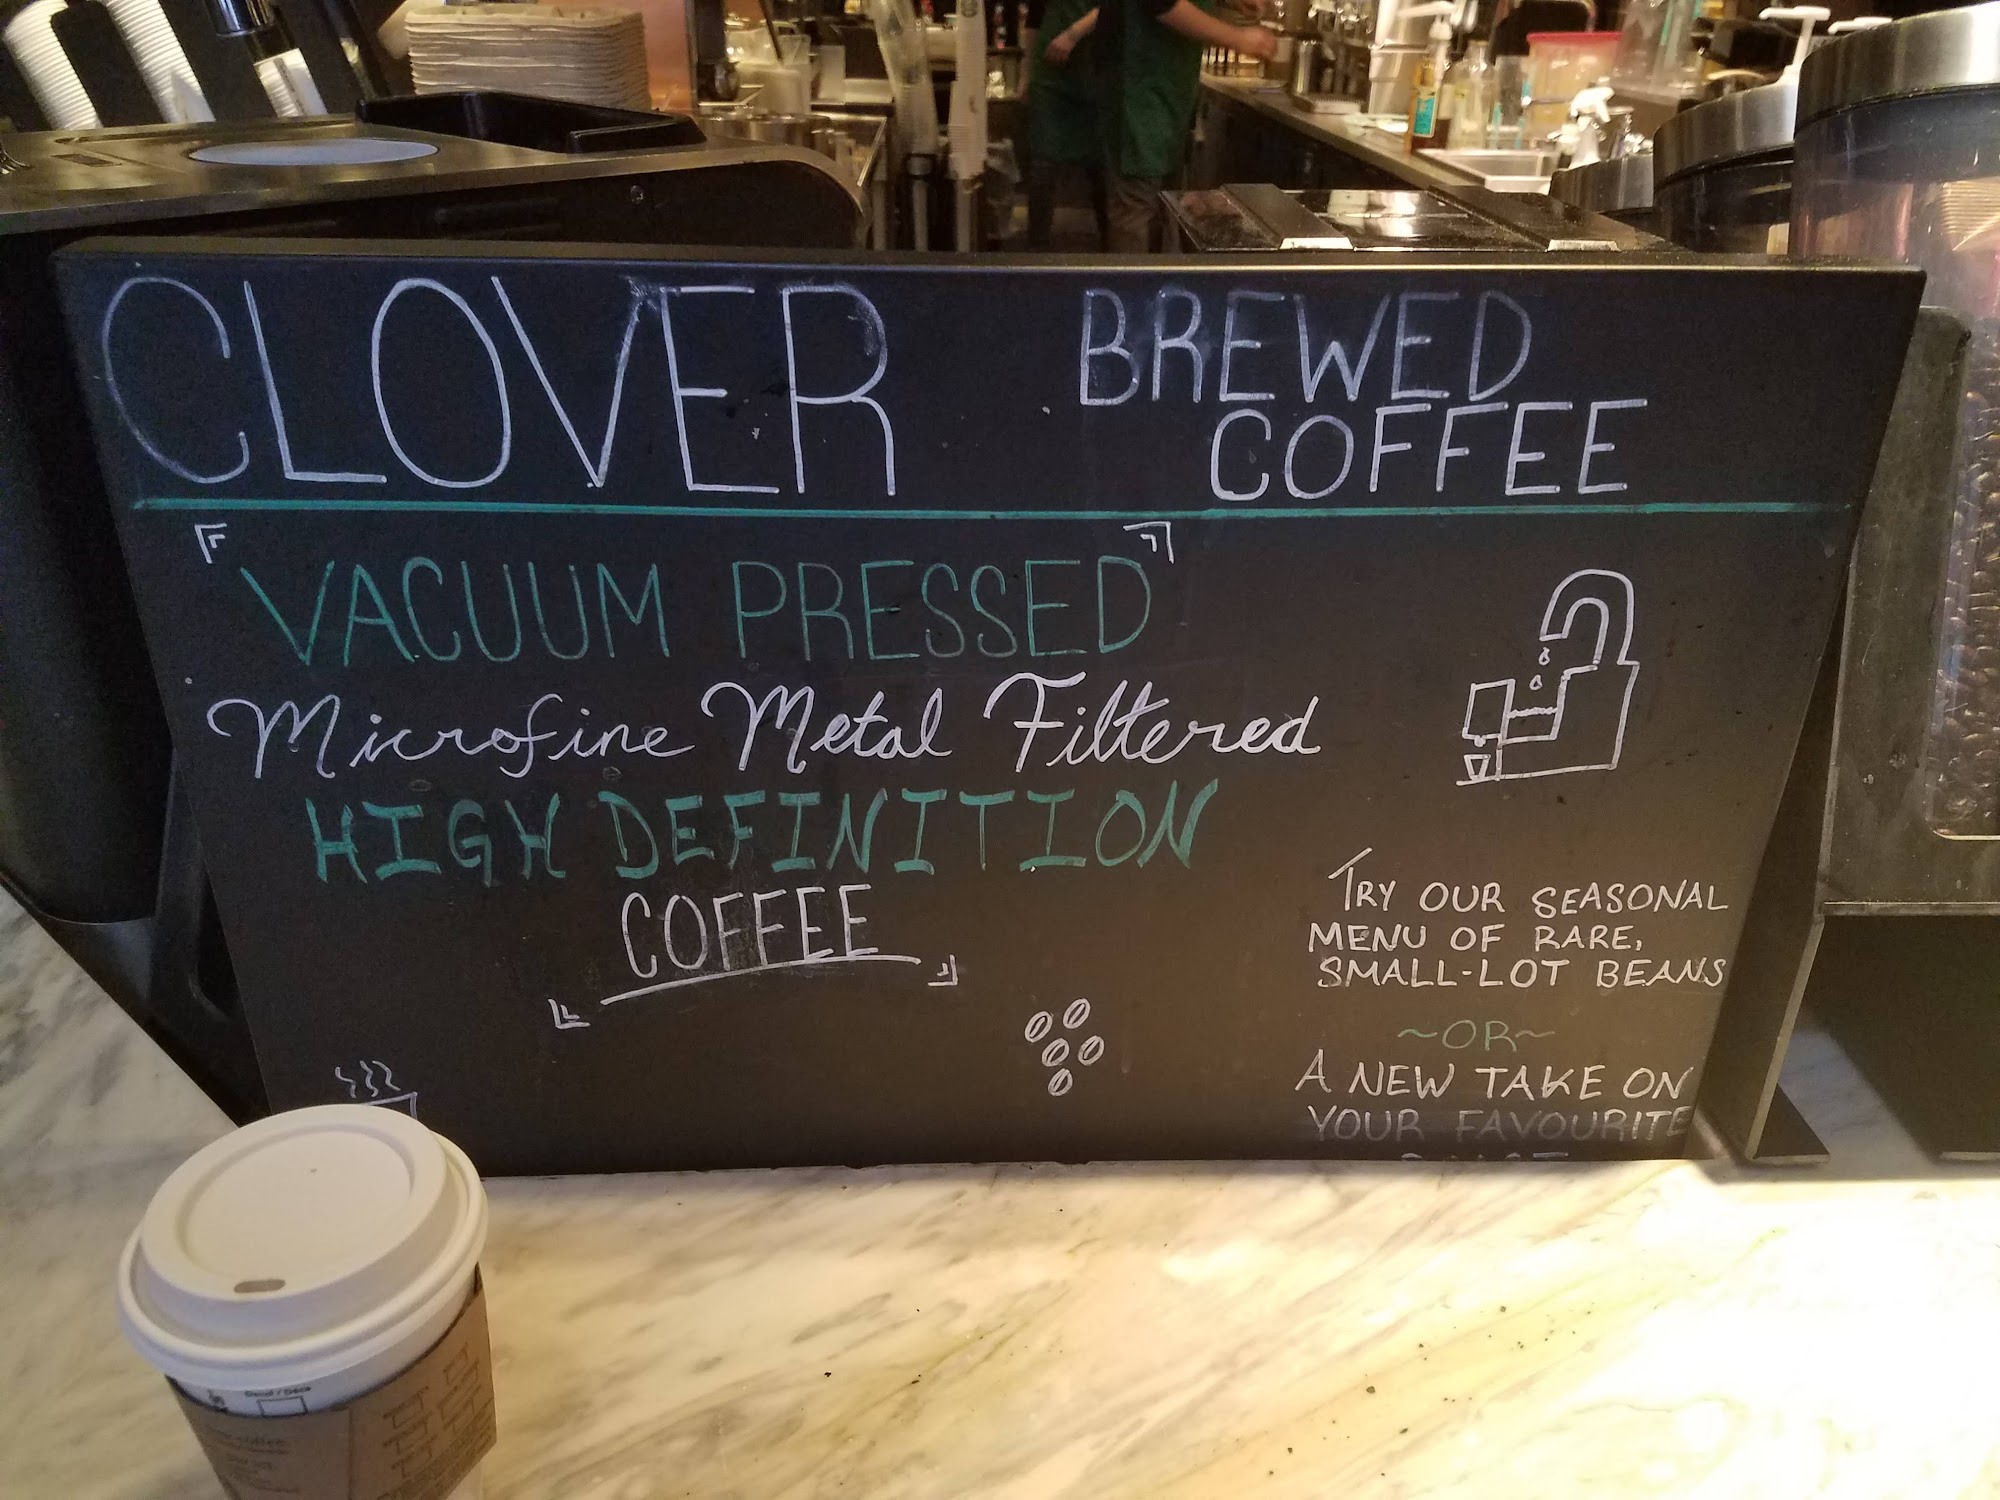 CLOVER BREWED
COFFEE
VACUUM PRESSED
Microfine Metal Filtered
HIGH DEFINITION
COFFEE
TRY OUR SEASONAL
MENU OF RARE,
SMALL-LOT BEANS
~OR~
A NEW TAKE ON
YOUR FAVOURITE
Decaf / Déca